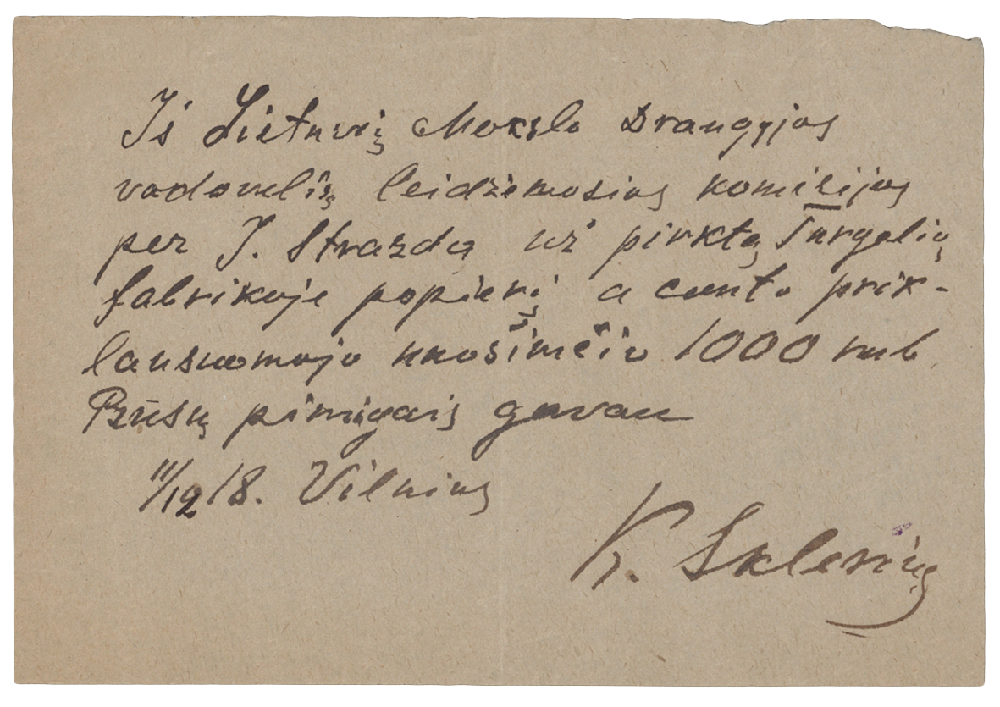 Iš Lietuvių Mokslo Draugyjos
vadovėlių leidžiamosios komisijos
per J. Strazdą už pirktą Turgelių
fabrikoje popierį a conto prik-
lausuomojo nuošimčio 1000 rub
Rusų pinigais gavau
11/12 18. Vilnius
K.